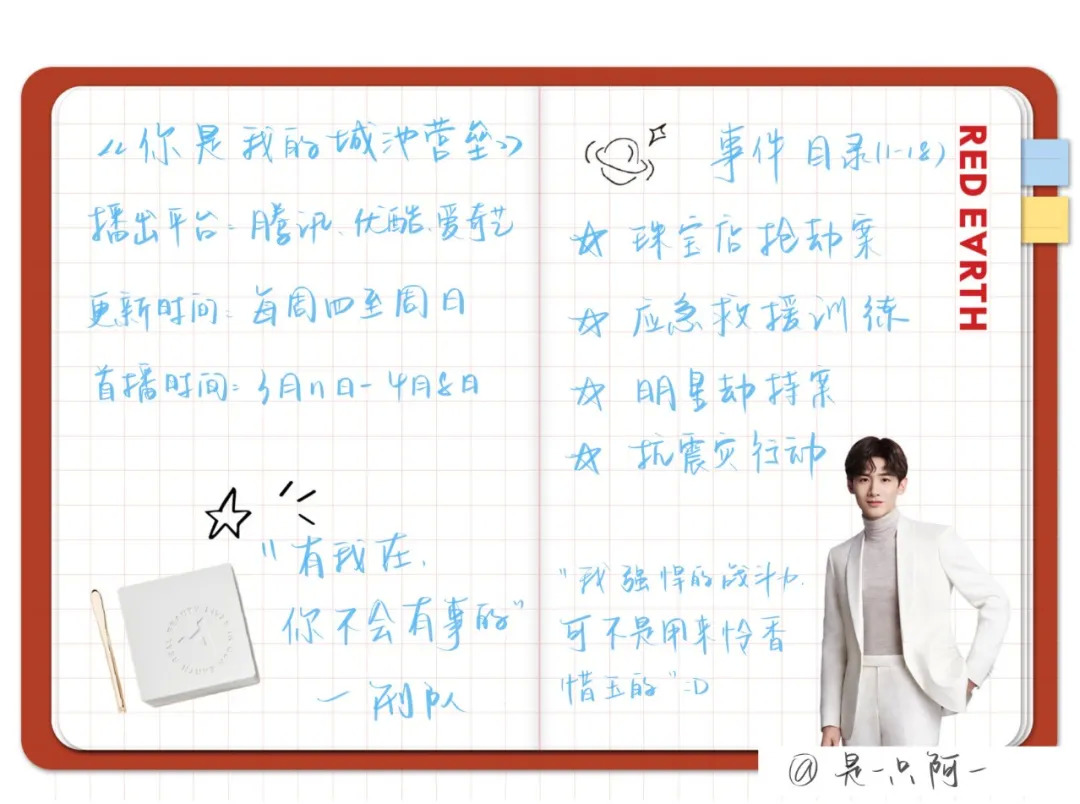 《你是我的城池营垒》
播出平台：腾讯、优酷、爱奇艺
更新时间：每周四至周日
首播时间：3月11日-4月8日
"有我在，
你不会有事的"
一刑队
事件目录(1-18)
☆ 珠宝店抢劫案
☆ 应急救援训练
☆ 明星劫持案
☆ 抗震灾行动
"我强悍的战斗力，
可不是用来怜香
惜玉的":D
RED EARTH
@是一只阿一